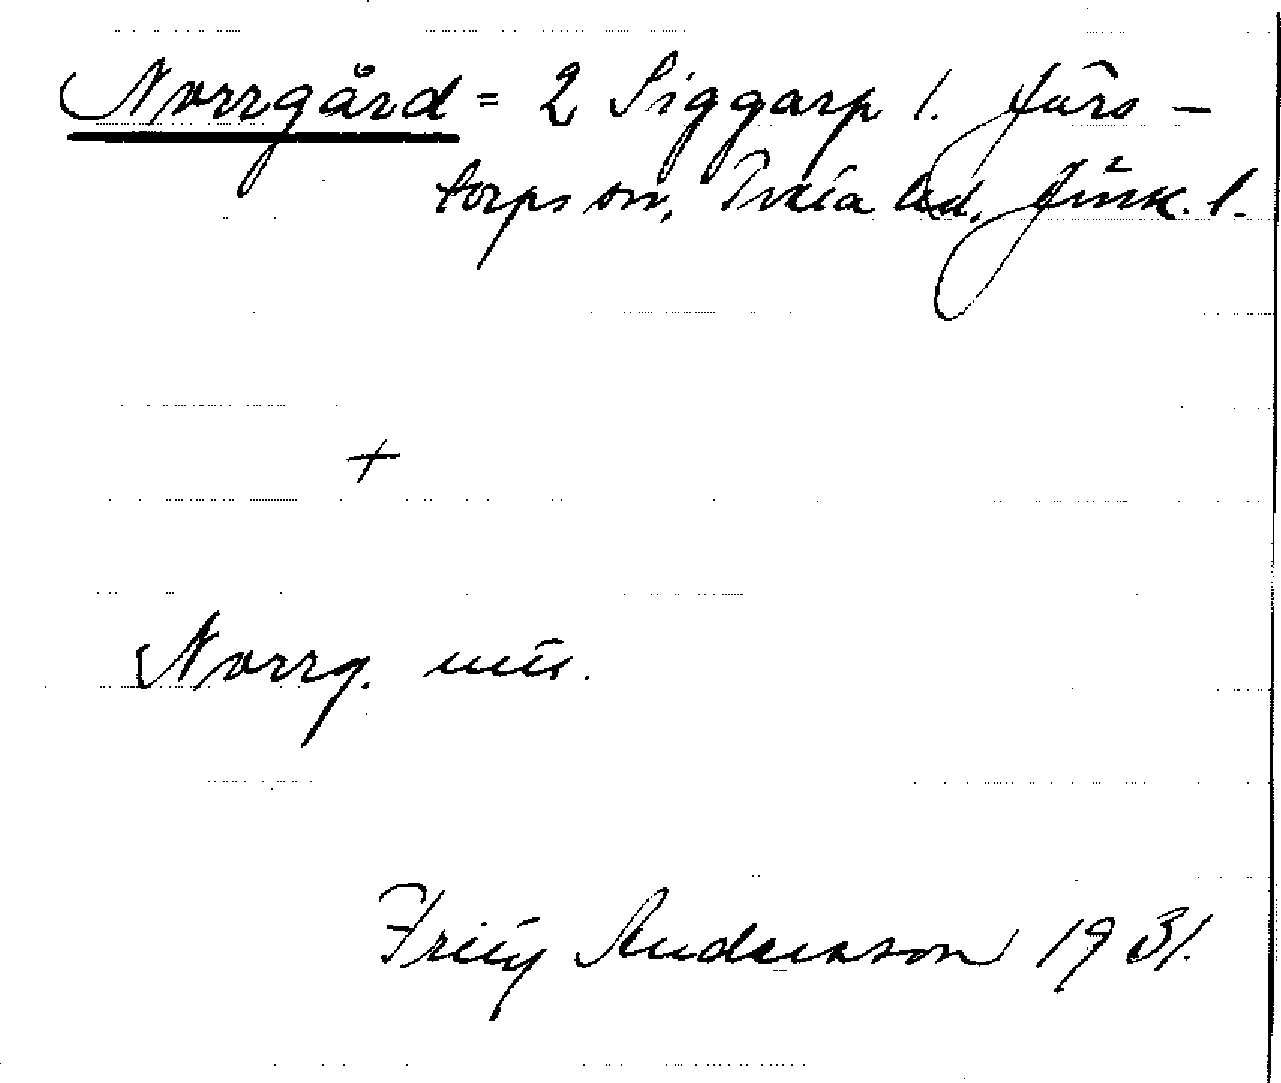 Norrgård = 2 Siggarp 1. Förs-
torps sn, Tveta hd, Jönk. l.
+
Norrg.
Anderson 1931.